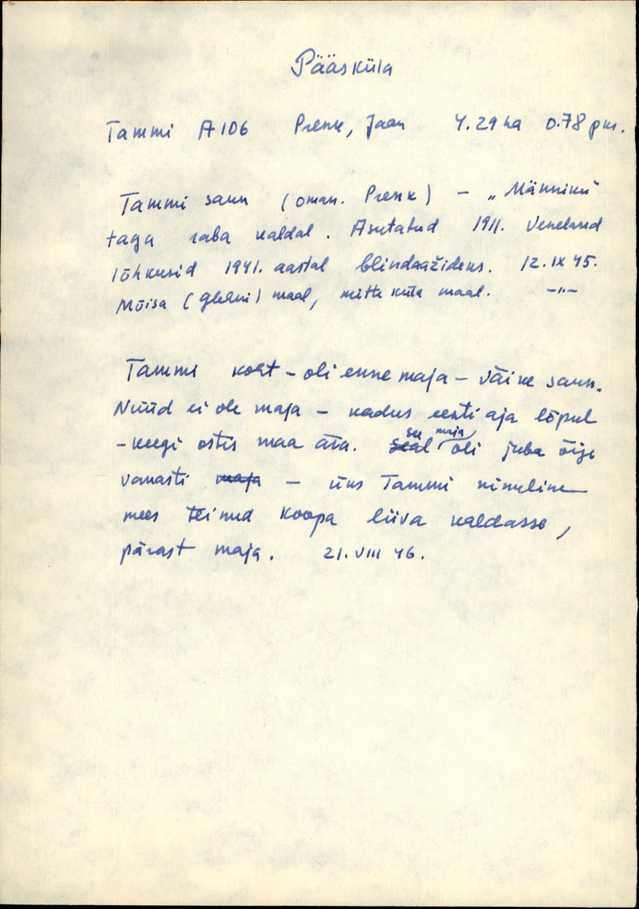 Pääsküla
Tammi A106 Prenk, Jaan 4.29 ha 0.78 pm.
Tammi saun (oman. Prenk) – „Männiku"
taga raba kaldal. Asutatud 1911. Venelased
lõhkusid 1941. aastal blindaažideks. 12.IX 45.
Mõisa (Glehni) maal, mitte küla maal. —"—
Tammi koht – oli enne maja – väike saun.
Nüüd ei ole maja – kadus eesti aja lõpul
– keegi ostis maa ära. see maja oli juba õige
vanasti maja – üks Tammi nimeline
mees teinud koopa liiva kaldasse,
pärast maja. 21.VIII 46.